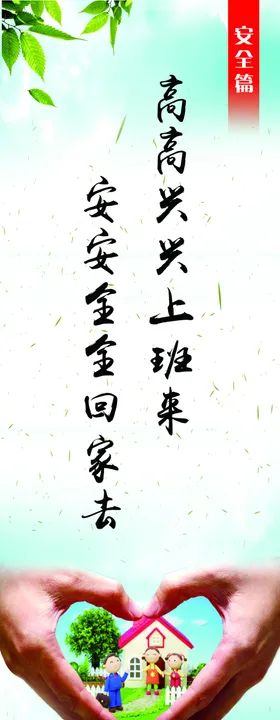 安全篇
高高兴兴上班来
安安全全回家去